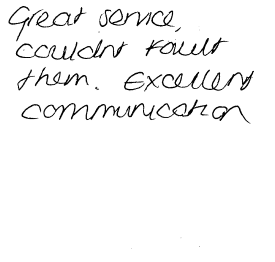 Great service,
couldnt fault
them. Excellent
communication